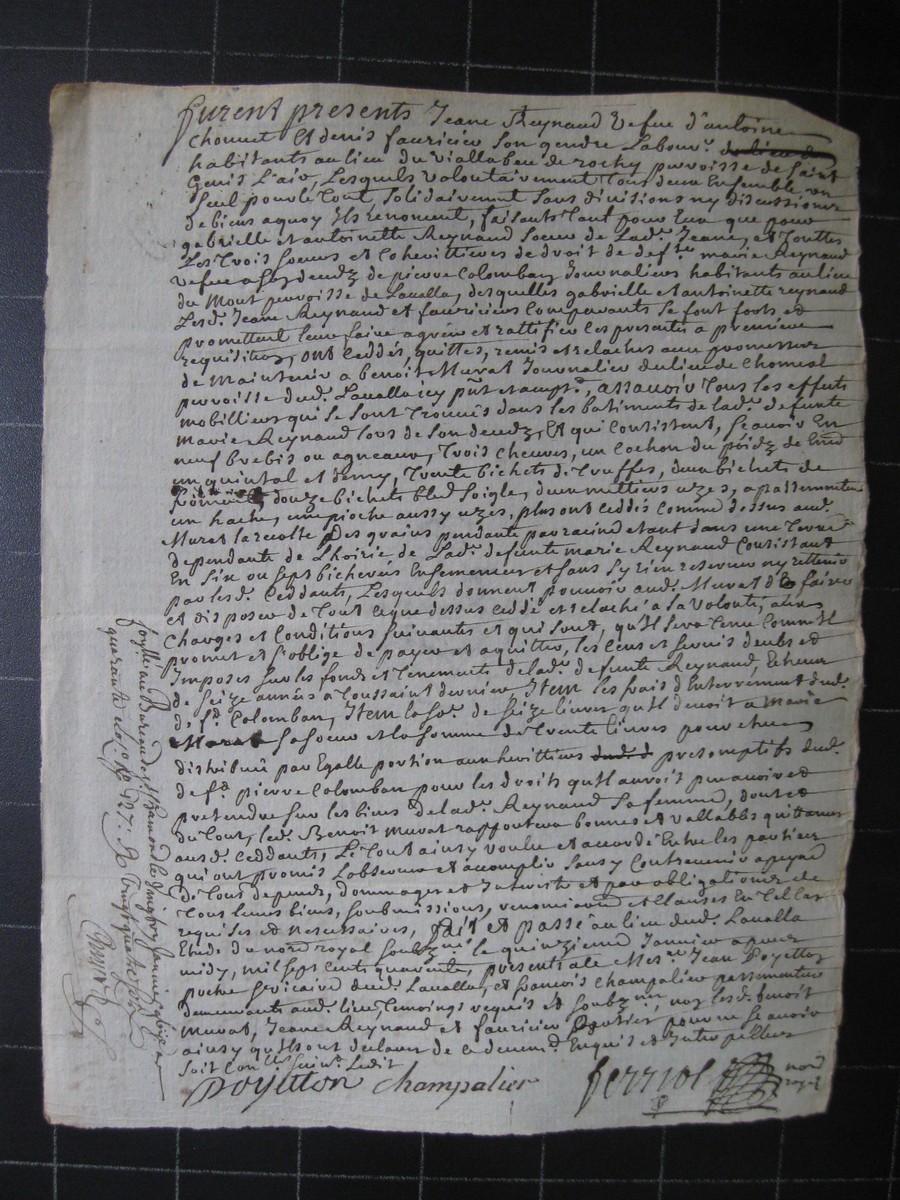 furent presents Jeane Reynaud vefue d'antoine
Chomet Et denis fauricier son gendre labour.
habitants au lieu du viallabau de rochy parroisse de saint
Genis L'air, Lesquels volontairement tous deux Ensemble un
seul pour le tout, solidairement sans divisions ny discussions
de biens a quoy Ils renoncent, faisants tant pour Eux que pour
gabrielle et antoinette Reynaud soeurs de Lad. Jeane, et Touttes
Les trois soeurs et Coherittieres de droit de def.te marie Reynaud
vefue a son decedz de pierre Colomban Journaliers habitants au lieu
du Mont parroisse de Lavalla, desquelles gabrielle et antoinette reynaud
Lesd. Jeane Reynaud et fauriciers Comparants se font forts, et
promettent leur faire agréer et rattifier les presentes a premiere
requisition, ont Ceddés, quittes, remis et relaches avec promesse
de Maintenir a benoit Murat Journalier du lieu de Chomeol
parroisse dud. Lavalla icy p.nt et acept., assavoir tous les effets
mobilliers qui se sont trouvés dans les batiments de lad. defunte
marie Reynaud lors de son decedz, Et qui Consistent, scavoir En
neuf brebis ou agneaux, trois cheures, un Cochon du poidz de
un quintal et demy, trente bichets de Truffes, deux bichets de
douze bichets bled soigle, deux mettiers uzes, a passementer
un hache, une pioche aussy uzes, plus ont ceddés comme dessus aud.
Murat la recolte des grains pendante par racine etant dans une Terre
dependante de L'hoirie de Lad. defunte marie Reynaud Consistant
En six ou sept bicherées Ensemencées et sans sy rien reserver ny rettenir
par lesd. Ceddants, Lesquels donnent pouvoir aud. Murat d'En faire
et disposer de tout ce que dessus ceddé et relaché a sa volonté, aux
Charges et Conditions suivantes et qui sont, qu'Il sera tenu Comme Il
promet et s'oblige de payer et aquitter, les Cens et servis deubs et
Imposes sur les fonds et tenements de lad. defunte Reynaud, Echeus
de seize années a Toussaint derniere Item les frais d'Enterrement dud.
def. Colomban, Item la so.e de seize livres qu'Il devoit a marie
Murat sa soeur et la somme de trente livres pour etre
distribué par Egalle portion aux heritiers presomptifs dud.
def. pierre Colomban pour les droits qu'Il auroit pu avoir et
pretendre sur les biens de lad. Reynaud sa femme, dont et
du tout, led. Benoit Murat rapportera bonnes et vallables quittances
ausd. Ceddants, Le tout ainsy voulu et accordé Entre les parties
qui ont promis L'observer et accomplir sans y Contrevenir a peyne
de tous depends, dommages et Interets et par obligations de
tous leurs biens, soubmissions, renonciaons et clauses En telles
requises et necessaires, fait et passé au lieu dud. Lavalla
Etude du no.re royal soubz.né le quinzieme Janvier apres
midy, mil sept cents quarente, presents a ce Me. Jean Poyetton
et francois Champalier passementier
demeurants aud. lieu, temoings requis et soubz.nes, non lesd. benoit
Murat, Jeane Reynaud et fauricier parties pour ne scavoir
ainsy qu'Ils ont declaré de ce deuem. Enquis et Interpellées
soit Con.llé suiv. Ledit
Poyetton Champalier ferriol no.re royal